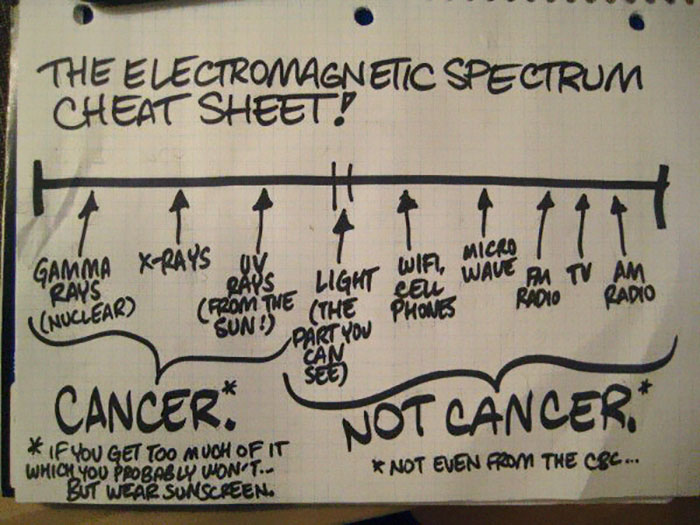 THE ELECTROMAGNETIC SPECTRUM
CHEAT SHEET!
GAMMA
RAYS
(NUCLEAR)
X-RAYS
UV
RAYS
(FROM THE
SUN!)
LIGHT
(THE
PART YOU
CAN
SEE)
WIFI,
CELL
PHONES
MICRO
WAVE
FM
RADIO
TV
AM
RADIO
CANCER.*
* IF YOU GET TOO MUCH OF IT
WHICH YOU PROBABLY WON'T...
BUT WEAR SUNSCREEN.
NOT CANCER.*
* NOT EVEN FROM THE CBC...